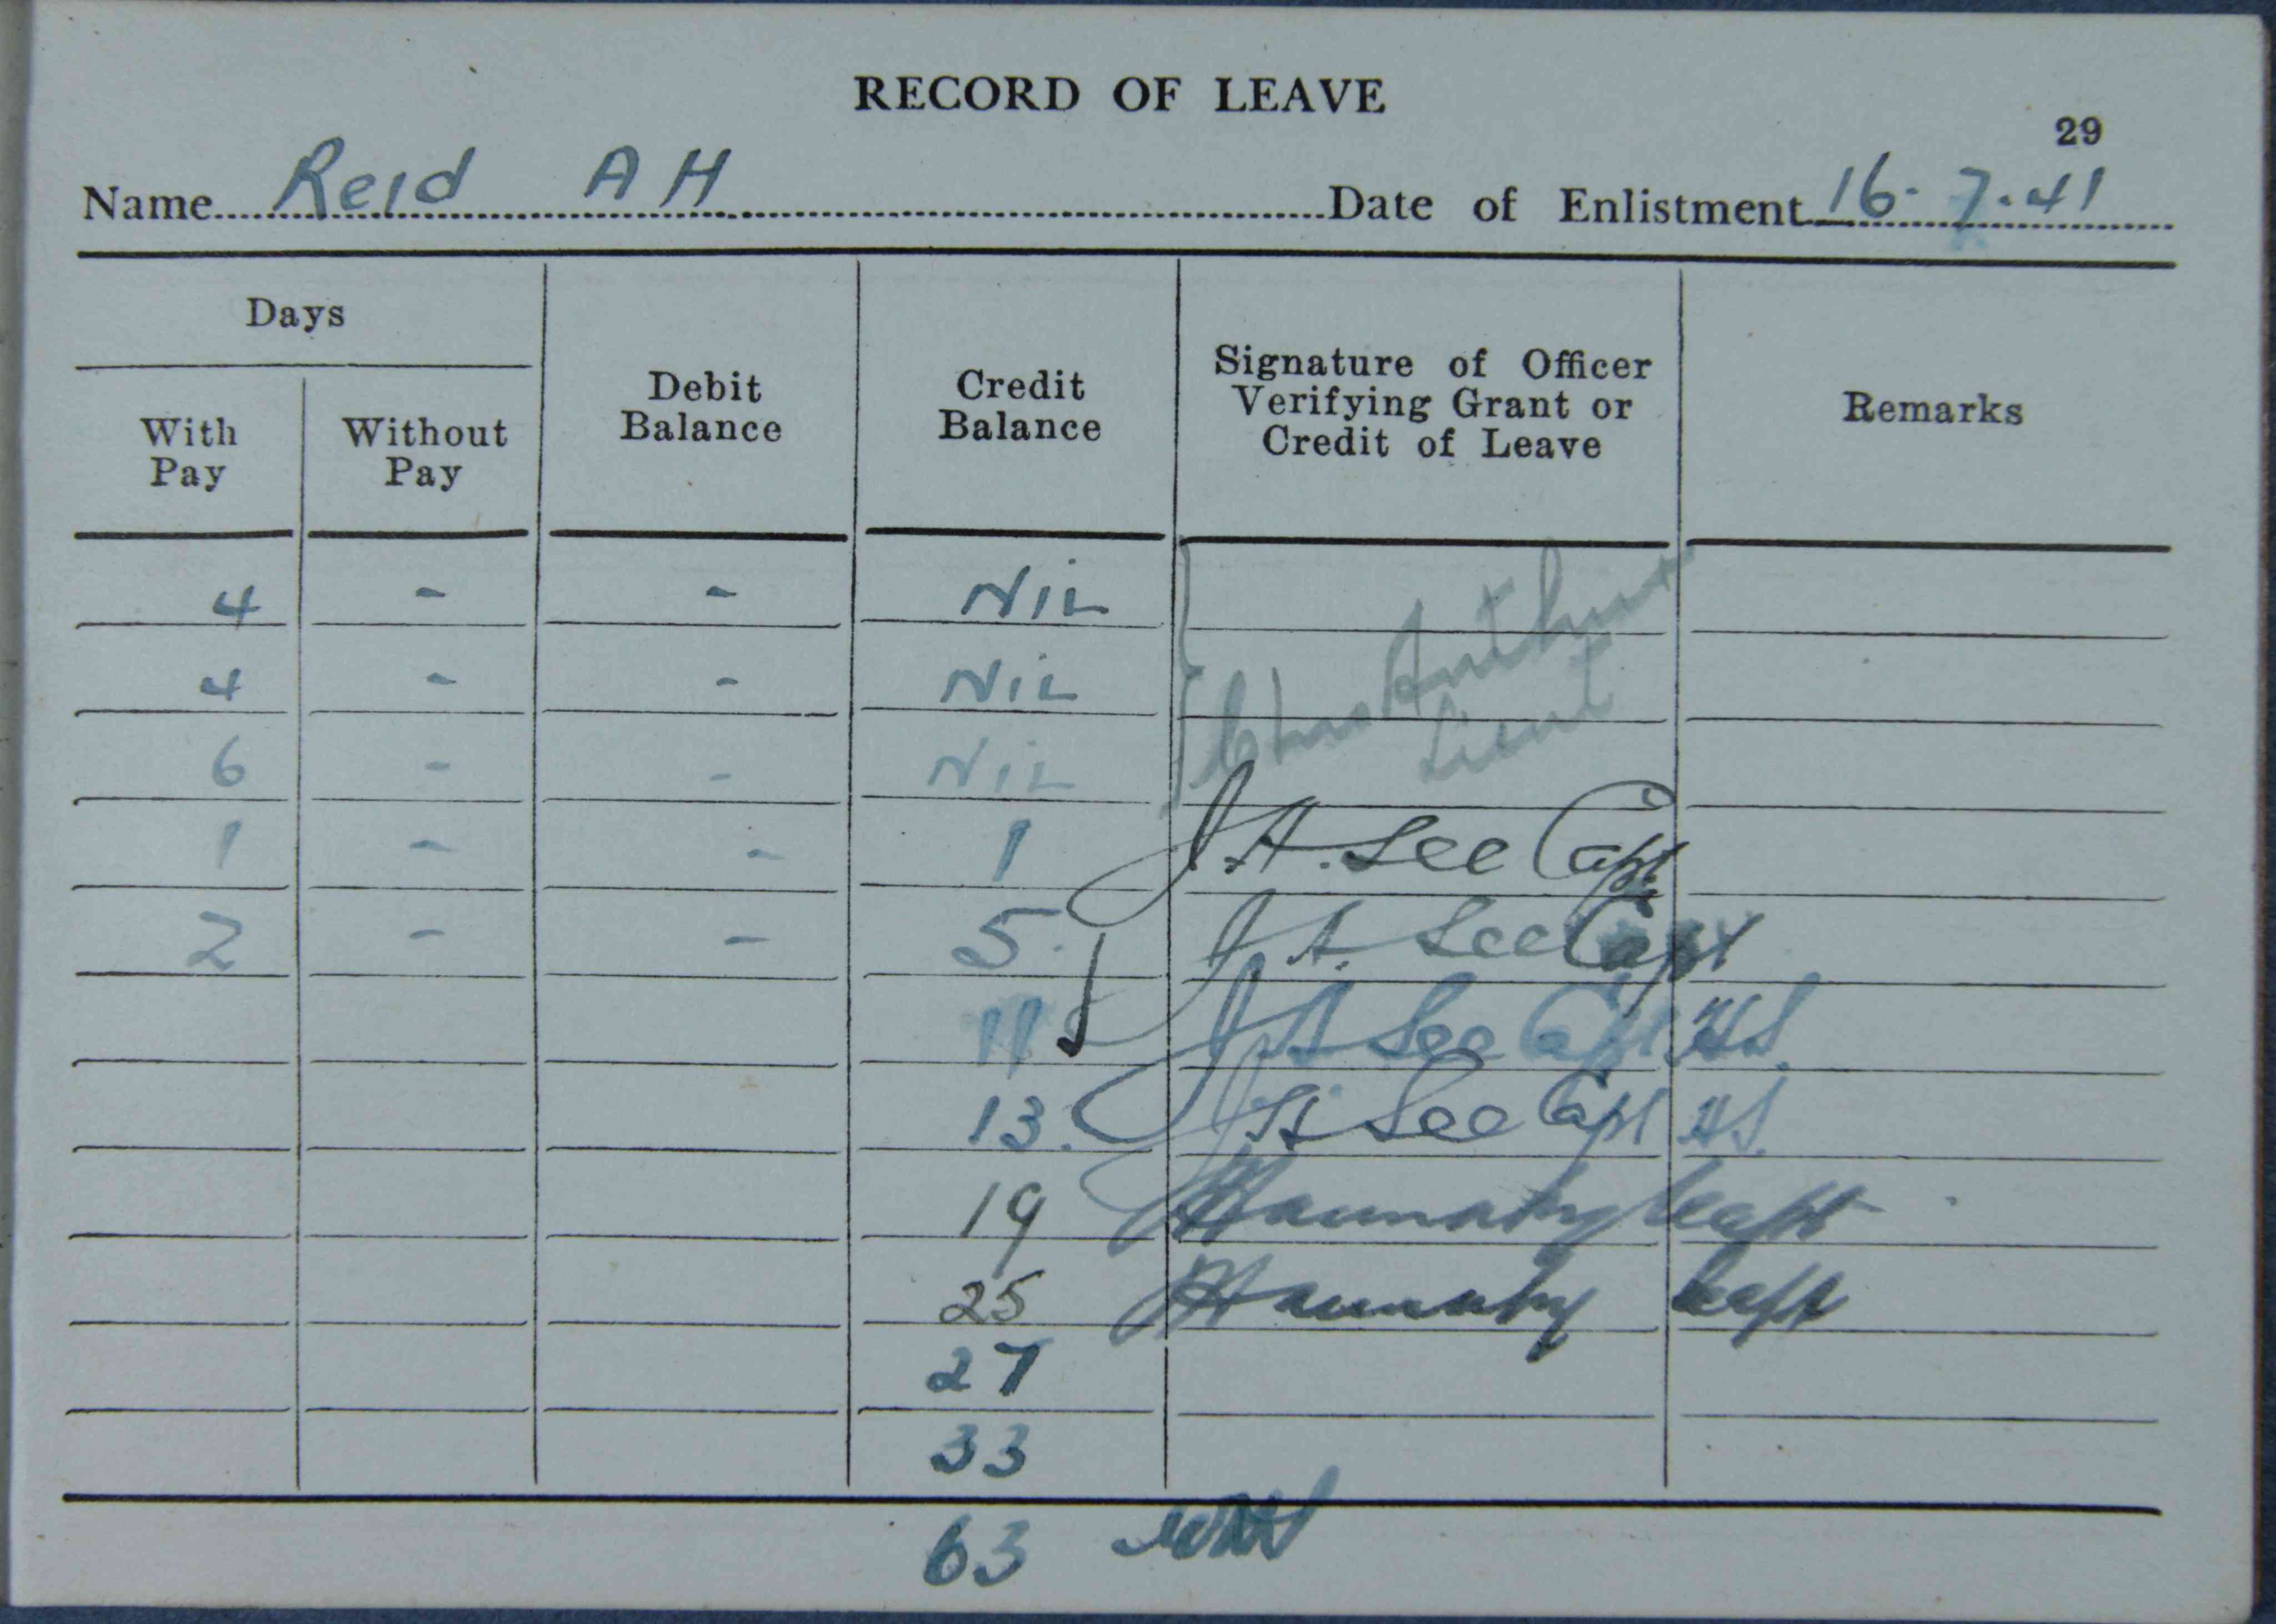 RECORD OF LEAVE
29
Name Reid A H Date of Enlistment 16-7-41
Days
With Pay
Without Pay
Debit Balance
Credit Balance
Signature of Officer Verifying Grant or Credit of Leave
Remarks
4 - - Nil
4 - - Nil Chas Arthur
6 - - Nil Lieut
1 - - 1 J. A. Lee Capt
2 - - 5. J A. Lee Capt
11 J A Lee Capt
13. J A Lee Capt
19 Capt
25 Capt
27
33
63